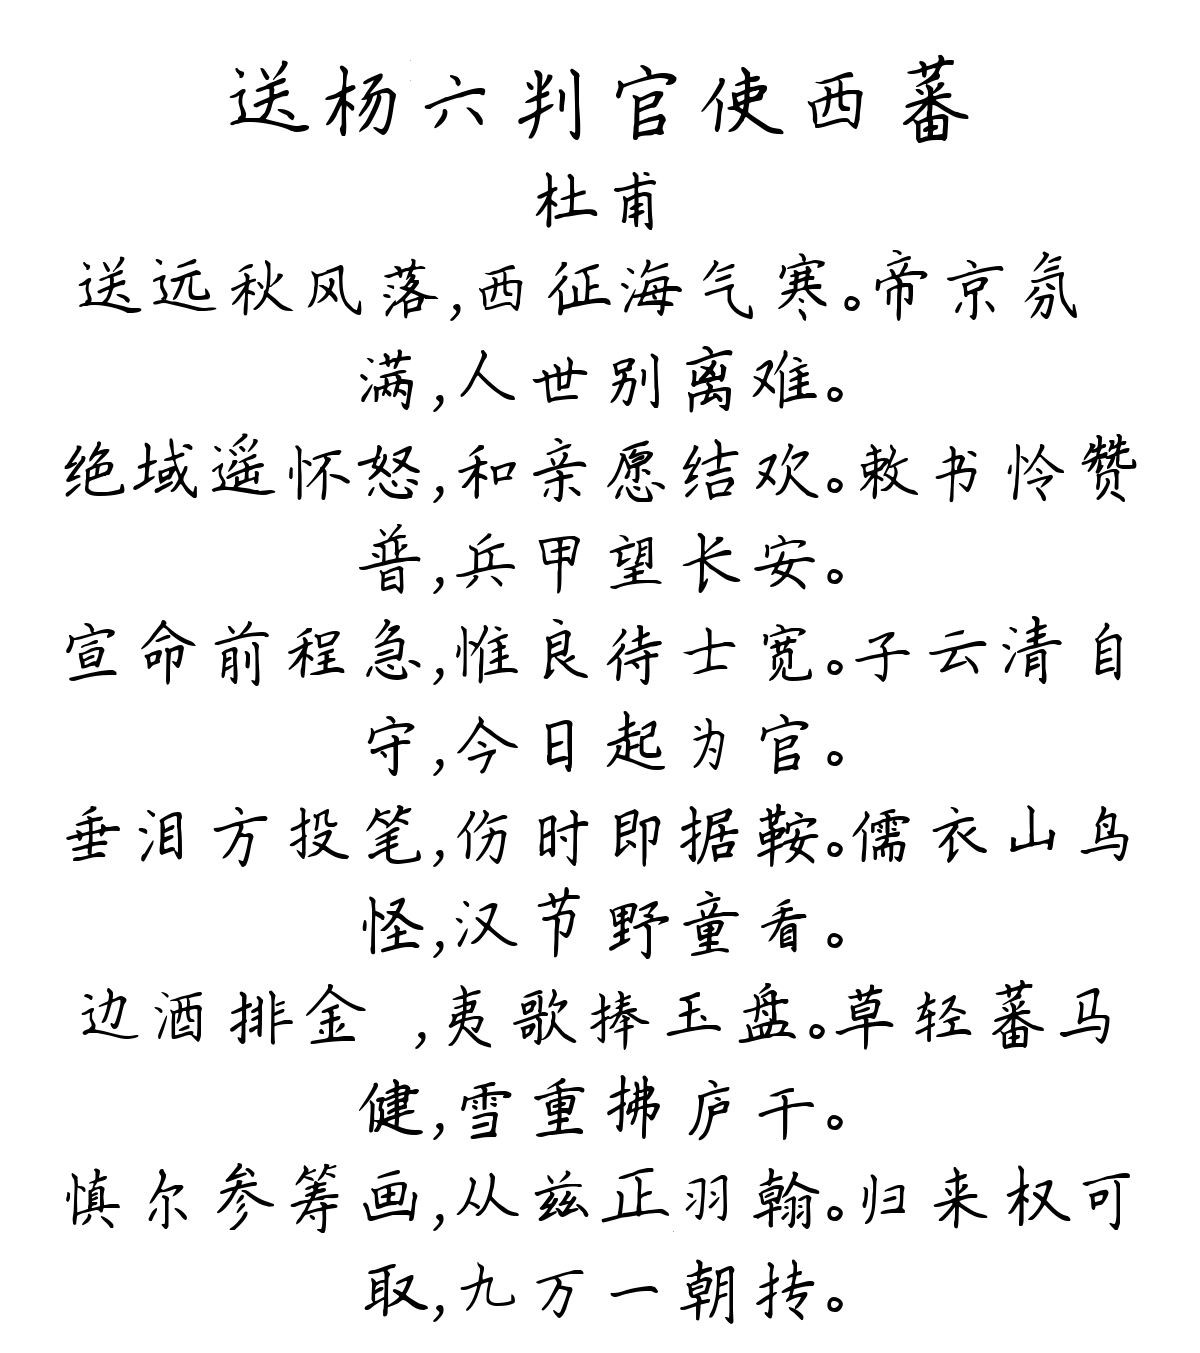 送杨六判官使西蕃
杜甫
送远秋风落,西征海气寒。帝京氛
满,人世别离难。
绝域遥怀怒,和亲愿结欢。敕书怜赞
普,兵甲望长安。
宣命前程急,惟良待士宽。子云清自
守,今日起为官。
垂泪方投笔,伤时即据鞍。儒衣山鸟
怪,汉节野童看。
边酒排金 ,夷歌捧玉盘。草轻蕃马
健,雪重拂庐干。
慎尔参筹画,从兹正羽翰。归来权可
取,九万一朝抟。